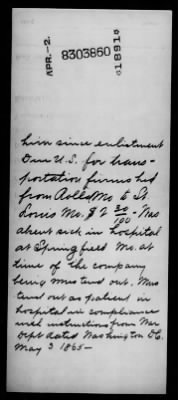 APR.-2.
8303860
1891
him since enlistment
Due U.S. for trans-
portation furnished
from Rolla Mo to St.
Louis Mo. $2 30/100 - Was
absent sick in hospital
at Springfield Mo. at
time of the company
being mustered out. Mus
tered out as patient in
hospital in compliance
with instructions from War
Dept dated Washington D.C.
May 3 1865-